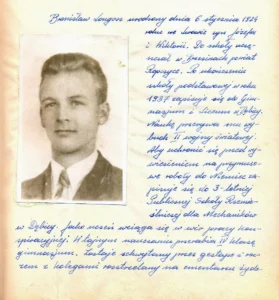 Bronisław Longosz urodzony dnia 6 stycznia 1924
roku we Lwowie syn Józefa
i Wiktorii. Do szkoły uczę-
szczał w Górcicach powiat
Ropczyce. Po ukończeniu
szkoły podstawowej w roku
1937 zapisuje się do Gim-
nazjum i Liceum w Dębicy
Naukę przerywa mu wy-
buch II wojny światowej.
Aby uchronić się przed wy-
wiezieniem na przymuso-
we roboty do Niemiec za-
pisuje się do 3-letniej
Publicznej Szkoły Rzemie-
ślniczej dla Mechaników
w Dębicy. Jako uczeń wciąga się w wir pracy kon-
spiracyjnej. W tajnym nauczaniu przerabia IV klasę
gimnazjum. Zostaje schwytany przez gestapo i ra-
zem z kolegami rozstrzelany na cmentarzu żydo-